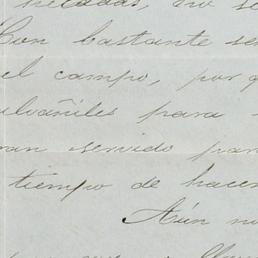 heladas, no se
Con bastante sen
el campo, por q
lvañiles para
ran servido par
tiempo de hacer
Aún no